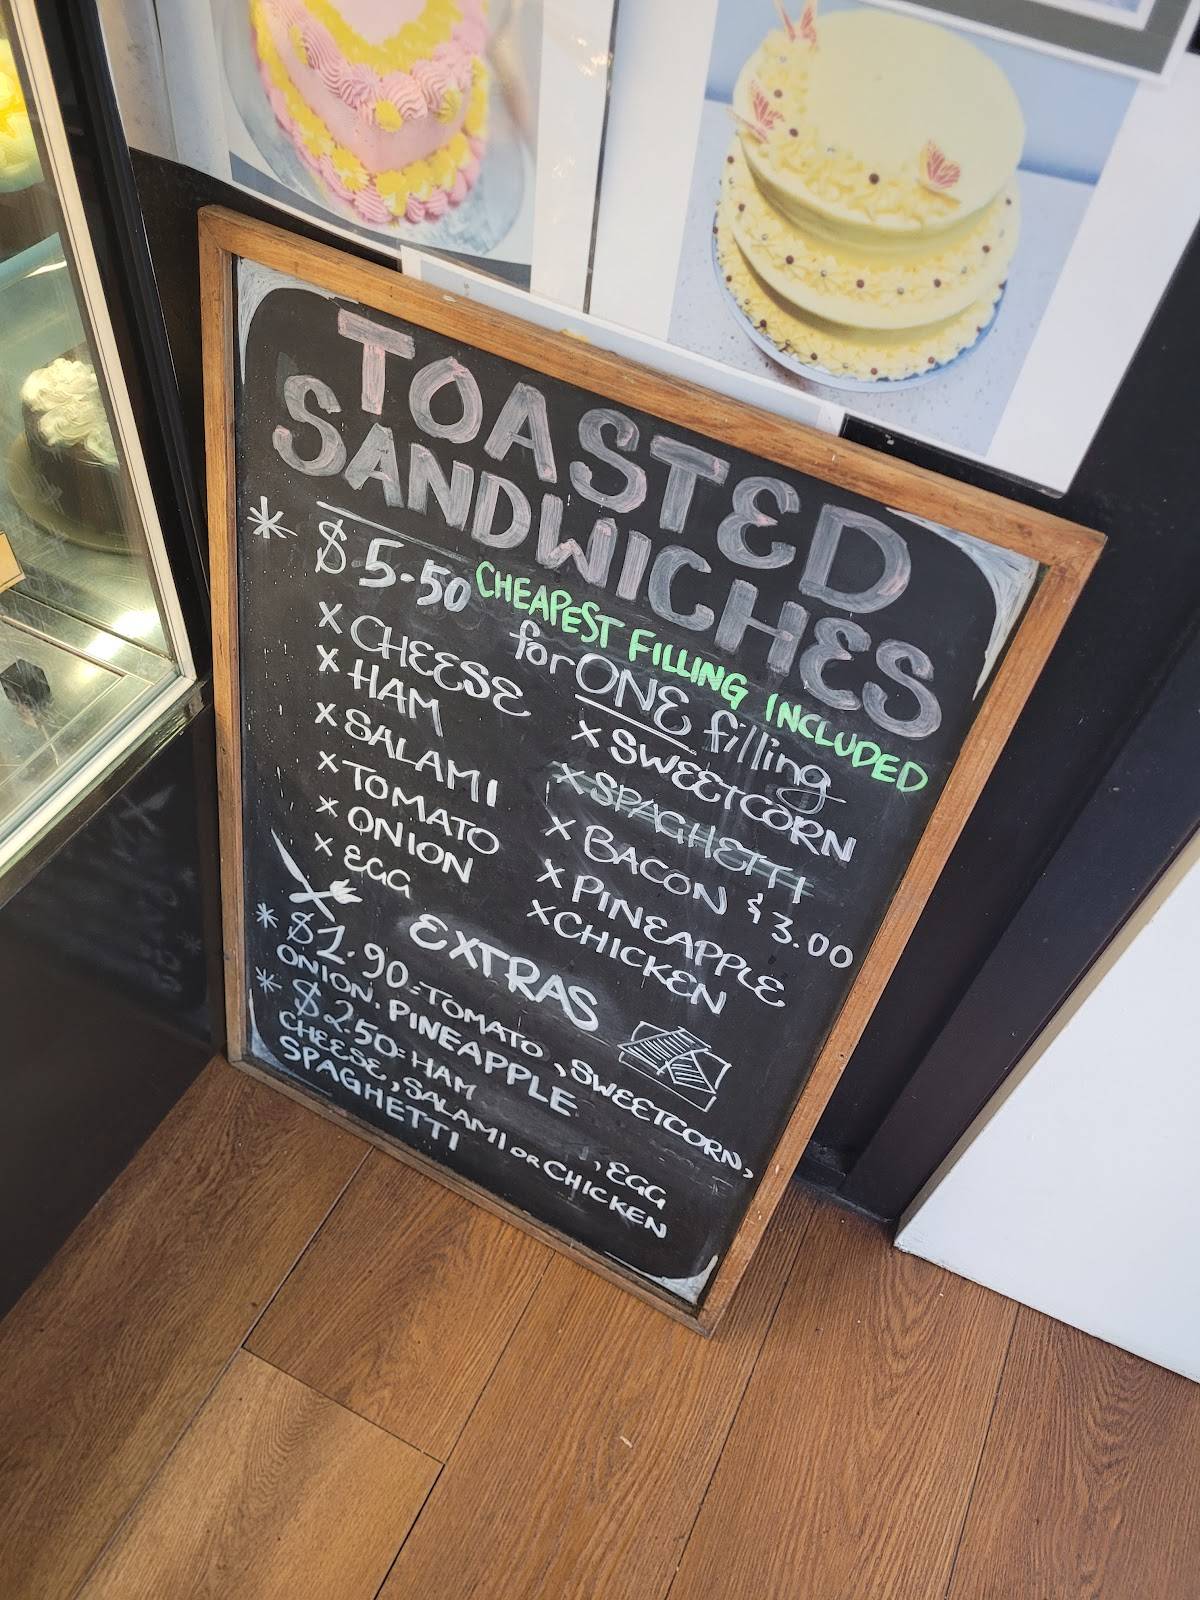 TOASTED
SANDWICHES
* $5.50 CHEAPEST FILLING INCLUDED
for ONE filling
x CHEESE
x HAM
x SALAMI
x TOMATO
x ONION
x EGG
x SWEETCORN
x SPAGHETTI
x BACON $3.00
x PINEAPPLE
x CHICKEN
EXTRAS
* $1.90=TOMATO, SWEETCORN,
ONION, PINEAPPLE
* $2.50= HAM, EGG
CHEESE, SALAMI OR CHICKEN
SPAGHETTI